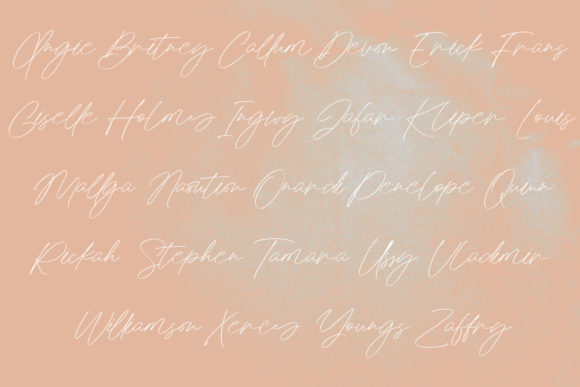 Angie Britney Callum Devon Erick Frans
Giselle Holmes Ingwy Jafar Kliper Louis
Mallga Naoution Onardi Penelope Quinn
Rickah Stephen Tamara Ussy Vladimir
Williamson Xercey Youngs Zaffry